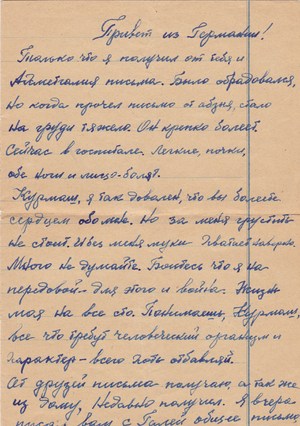 Привет из Германии!
Только что я получил от тебя и
Айметгалия письма. Было обрадовался,
но когда прочел письмо от абзия, стало
на груди тяжело. Он крепко болеет.
Сейчас в госпитале. Легкие, почки,
обе ноги и лицо - болят.
Курмаш, я так доволен, что вы болеете
сердцем обо мне. Но за меня грустить
не стоит. И без меня муки хватает наверно.
Много не думайте. Боитесь что я на
передовой - для этого и война. Жизнь
моя на все сто. Понимаешь, Курмаш,
все что требует человеческий организм и
характер - всего хоть отбавляй.
От друзей письма получаю, а так же
из дому, недавно получил. Я вчера
писал вам с Галей общее письмо